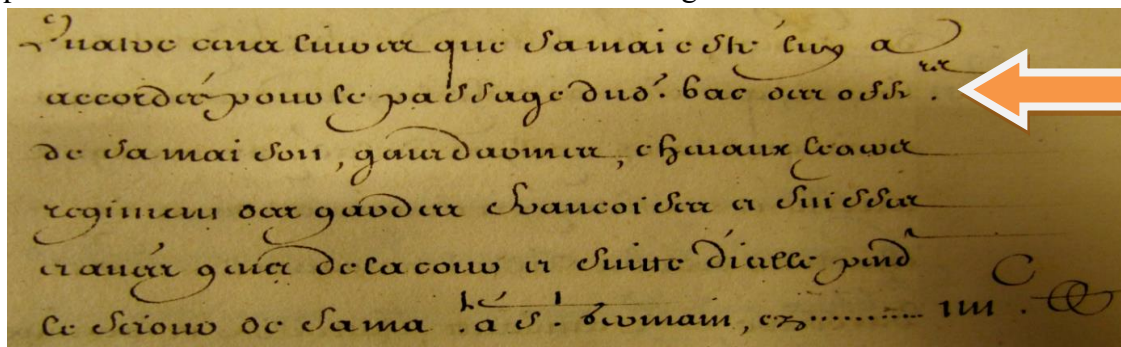 Quatre cens livres que sa maiesté luy a
accordées pour le passage dud. bac des offrs.
de sa maison, gensdarmes, chevaux legers
regimens des gardes francoises et suisses
et autres gens de la cour et suitte d'icelle pend
le seiour de sa ma.té a St. Germain, cy.......... IIIIC